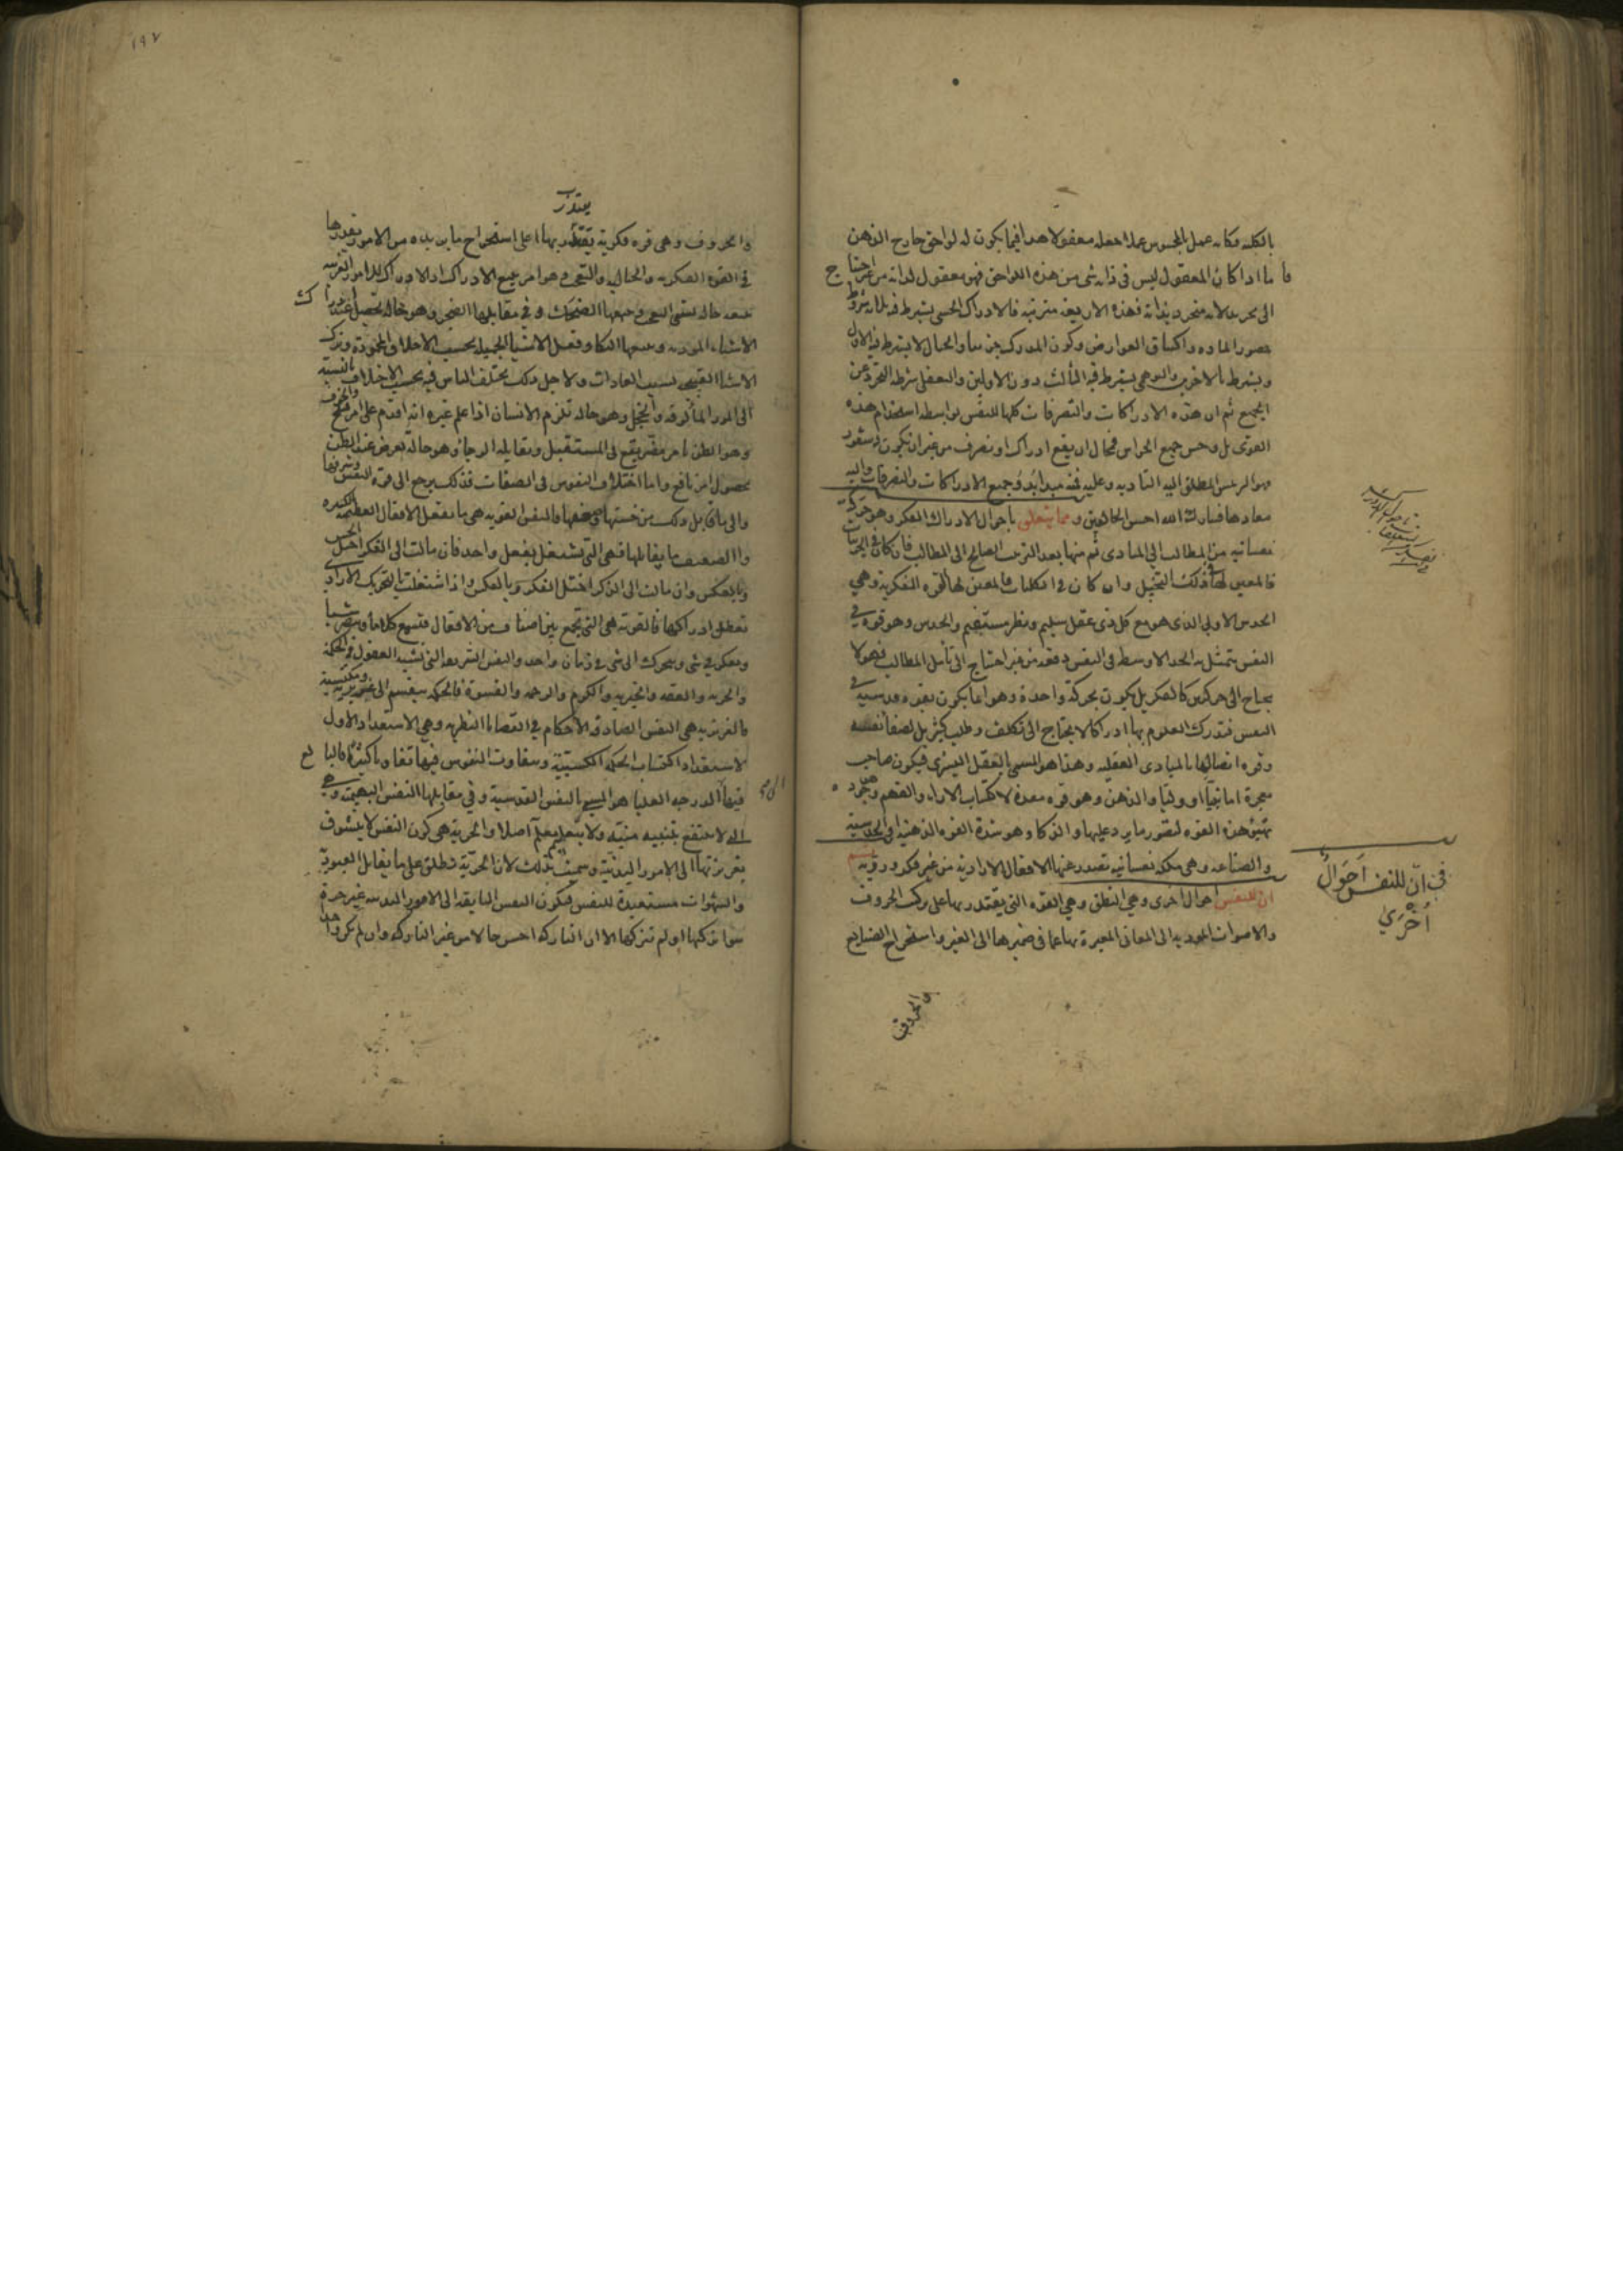 بالكلية فكانه عمل بالمحسوس عملا جعله معقولا هذا فيما يكون له لواحق خارج الذهن
فاما اذا كان المعقول ليس فى ذاته شى من هذه اللواحق فهو معقول لذاته من غير احتياج
الى تجريد لانه متجرد بذاته فهذه الاربعة مترتبة فالادراك الحسى يشترط فيه ثلاثة شروط
حضور المادة واكتناف العوارض وكون المدرك جزئيا والخيال لا يشترط فيه الاول
ويشترط الاخرين والوهمى يشترط فيه الثالث دون الاولين والتعقل شرطه التجرد عن
الجميع ثم ان هذه الادراكات والتصرفات كلها للنفس بواسطة استخدام هذه
القوى بل وحس جميع الحواس فمحال ان يقع ادراك او تصرف من غير ان يكون له شعور
فهو الرئيس المطلق اليه التادية وعليه فمنه مبدأ جميع الادراكات والتصرفات واليه
معادها فتبارك الله احسن الخالقين ومما يتعلق باحوال الادراك الفكر وهو حركة
نفسانية من المطالب الى المبادى ثم منها بعد الترتيب الصالح الى المطالب فان كان فى الجزئيات
فالمعين لها فى ذلك التخيل وان كان فى الكليات فالمعين لها القوة المفكرة وهى
الحدس الاولى الذى هو مع كل ذى عقل سليم ونظر مستقيم والحدس وهو قوة فى
النفس يتمثل به الحد الاوسط فى النفس دفعة من غير احتياج الى تأمل المطالب فهو لا
يحتاج الى حركتين كالفكر بل يكون بحركة واحدة وهو انما يكون بقوة قدسية فى
النفس فتدرك العلوم بها ادراكا لا يحتاج الى تكلف وطلب كثير بل لصفا نفسه
وقوة اتصالها بالمبادى العقلية وهذا هو المسمى بالتعقل البشرى فيكون صاحب
معجزة اما نبيا او وليا والذهن وهو قوة معدة لاكتساب الاراء والفهم وهو جودة
تهيئ هذه القوة لتصور ما يرد عليها والذكا وهو شدة القوة الذهنية
والصناعة وهى ملكة نفسانية تصدر عنها الافعال الارادية من غير فكر وروية
ان للنفس احوال اخرى وهى النطق وهى القوة التى يقتدر بها على تركيب الحروف
والاصوات المؤدية الى المعانى المعبرة بها عما فى ضميرها الى الغير واستخراج الصنايع
والحروف
فى ان للنفس احوال
اخرى
١٩٧
يقتدر
والحروف وهى قوة فكرية يقتدر بها على استخراج ما يريده من الامور
فى القوة الفكرية والخيالية والتعجب وهو امر يتبع الادراك
يتبعه حالة تسمى التعجب ويتبعها الضحك وفى مقابلها الضجر وهو حالة تحصل عند ادراك
الاشياء الموذية ويتبعها البكا وفعل الاشيا الجميلة بحسب الاخلاق المحمودة وترك
الاشيا القبيحة بسبب العادات ولاجل ذلك يختلف الناس فيه بحسب الاختلاف بالنسبة
الى الامور المألوفة والخجل وهو حالة تلزم الانسان اذا علم غيره انه اقدم على امر قبيح والخوف
وهو الظن بامر مضر يقع فى المستقبل ويقابله الرجا وهو حالة تعرض عند الظن
بحصول امر نافع واما اختلاف النفوس فى الصفات فذلك يرجع الى قوة النفس وشرفها
والى ما قابل ذلك من خستها وضعفها والنفس القوية هى ما تفعل الافعال العظيمة الكثيرة
والضعيفة ما يقابلها فهى التى تشتغل بفعل واحد فان مالت الى الفكر اختل الحس
وبالعكس وان مالت الى الذكر اختل الفكر وبالعكس واذا اشتغلت بالتحريك الارادى
تعطل ادراكها فالقوية هى التى تجمع بين اصناف من الافعال فتسمع كلاما وتبصر شيا
وتفكر فى شى وتتحرك الى شى فى زمان واحد والنفس الشريفة التى تشبه العقول فى الحكمة
والحرية والعفة والخيرية والكرم والرحمة والقسوة فالحكمة تنقسم الى غريزية ومكتسبة
فالغريزية هى النفس الصادقة الاحكام فى القضايا النظرية وهى الاستعداد الاول
لاستعداد اكتساب الحكمة المكتسبة وتتفاوت النفوس فيها تفاوتا كثيرا فالبالغ
فيها الدرجة العليا هو المسمى بالنفس القدسية وفى مقابلها النفس البهيمية وهى
التى لا تنتفع بتنبيه منبه ولا بتعليم معلم اصلا والحرية هى كون النفس لا تتشوق
بغريزتها الى الامور البدنية وسميت بذلك لان الحرية تطلق على ما يقابل العبودية
والشهوات مستعبدة للنفس فتكون النفس التايقة الى الامور البدنية غير حرة
سوا تركتها او لم تتركها الا ان التاركة احسن حالا من غير التاركة وان لم تكن